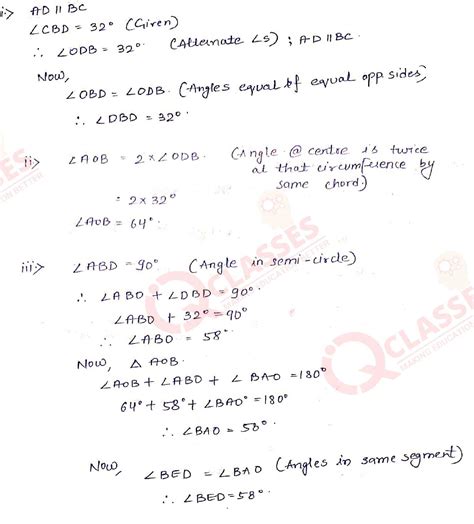 i> AD II BC
∠CBD = 32° (Given)
∴ ∠ODB = 32° (Alternate ∠s) ; AD II BC.
Now,
∠OBD = ∠ODB. (Angles equal of equal opp sides)
∴ ∠OBD = 32°
ii> ∠AOB = 2 x ∠ODB. (Angle @ centre is twice
at that circumference by
same chord.)
= 2 x 32°
∠AOB = 64°.
iii> ∠ABD = 90° (Angle in semi-circle)
∴ ∠ABO + ∠OBD = 90°
∠ABO + 32° = 90°
∴ ∠ABO = 58°
Now, △ AOB.
∠AOB + ∠ABO + ∠BAO = 180°
64° + 58° + ∠BAO° = 180°
∴ ∠BAO = 58°
Now, ∠BED = ∠BAO (Angles in same segment)
∴ ∠BED = 58°.
IQ CLASSES
MAKING EDUCATION BETTER